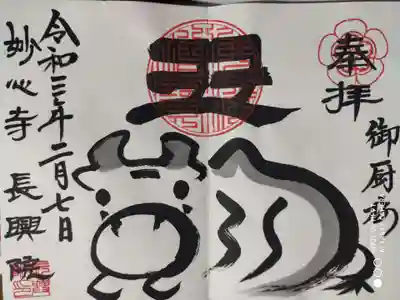 奉拝
丑
令和三年二月七日
妙心寺 長興院